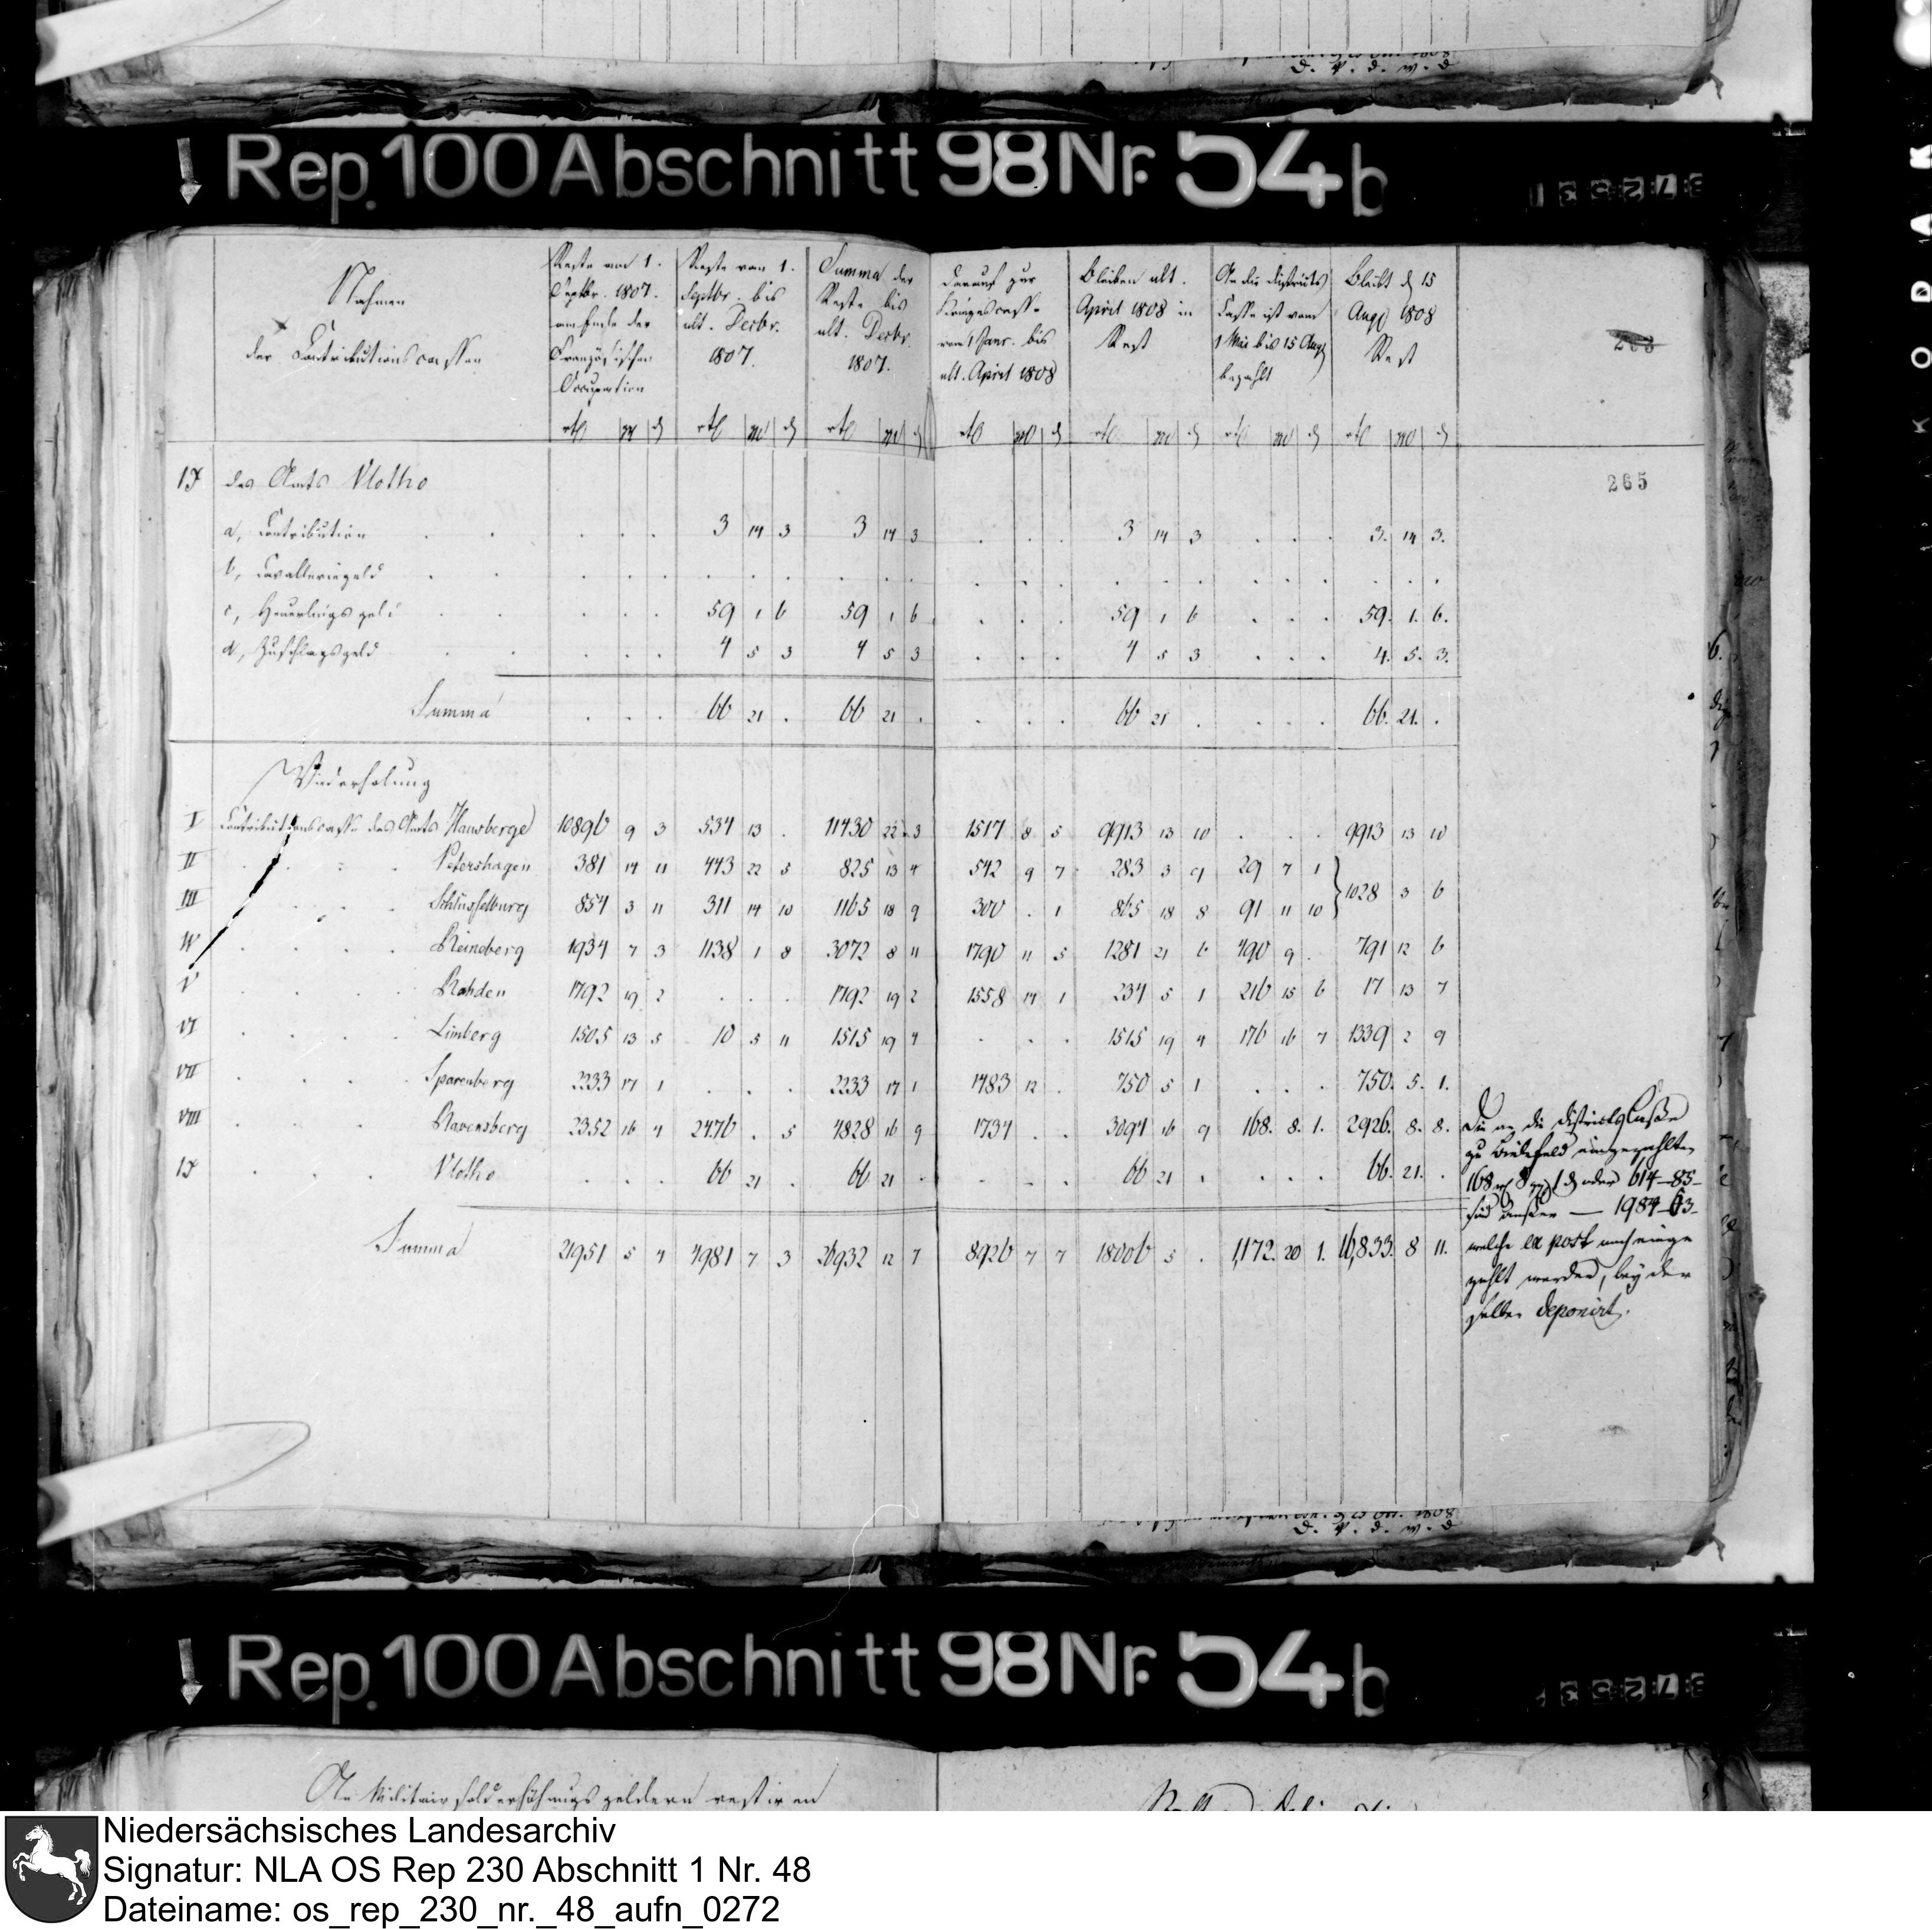 D. V. d. w. d
Rep. 100 Abschnitt 98 Nr. 54 b
Nahmen
der Contributionscassen
Reste von 1.
Septbr. 1807.
am Ende der
Französischen
Occupation
Reste vom 1.
Septbr. bis
ult. Decbr.
1807.
Summa der
Reste bis
ult. Decbr.
1807.
Darauf zur
Kriegescasse
vom 1 Janr. bis
ult. April 1808
Bleiben ult.
April 1808 in
Rest
An die Districts
Casse ist vom
1 Mai bis 15 Aug
bezahlt
Bleibt d 15
Aug 1808
Rest
265
IX des Amts Vlotho
a, Contribution 3 14 3 3 14 3 3 14 3 3. 14 3.
b, Cavalleriegeld
c, Heuerlingsgeld 59 1 6 59 1 6 59 1 6 59. 1. 6.
d, Zuschlagsgeld 4 5 3 4 5 3 4 5 3 4. 5. 3.
Summa 66 21 . 66 21 . 66 21 . 66. 21. .
Wiederholung
I Contributionscasse des Amts Hausberge 10896 9 3 534 13 . 11430 22 3 1517 8 5 9913 13 10 . . . 9913 13 10
II Petershagen 381 14 11 443 22 5 825 13 4 542 9 7 283 3 9 29 7 1
III Schlüsselburg 854 3 11 311 14 10 1165 18 9 300 . 1 865 18 8 91 11 10 1028 3 6
IV Reineberg 1934 7 3 1138 1 8 3072 8 11 1790 11 5 1281 21 6 490 9 . 791 12 6
V Rahden 1792 19 2 . . . 1792 19 2 1558 14 1 234 5 1 216 15 6 17 13 7
VI Limberg 1505 13 5 10 5 11 1515 19 4 . . . 1515 19 4 176 16 7 1339 2 9
VII Sparenberg 2233 17 1 . . . 2233 17 1 1483 12 . 750 5 1 . . . 750. 5. 1.
VIII Ravensberg 2352 16 4 2476 . 5 4828 16 9 1734 . . 3094 16 9 168. 8. 1. 2926. 8. 8.
IX Vlotho . . . 66 21 . 66 21 . . . . 66 21 . . . . 66. 21. .
Summa 21951 5 4 4981 7 3 26932 12 7 8926 7 7 18006 5 . 1,172. 20 1. 16,833. 8 11.
Die an die Districts Casse
zu Bielefeld eingezahlten
168 8 1 oder 614-85-
sind außer — 1984-63-
welche ex post noch einge
zahlt werden, bey der
selben deponirt.
D. V. d. w. d
Rep. 100 Abschnitt 98 Nr. 54 b
An Militairsolderhöhungsgeldern restiren
Niedersächsisches Landesarchiv
Signatur: NLA OS Rep 230 Abschnitt 1 Nr. 48
Dateiname: os_rep_230_nr._48_aufn_0272